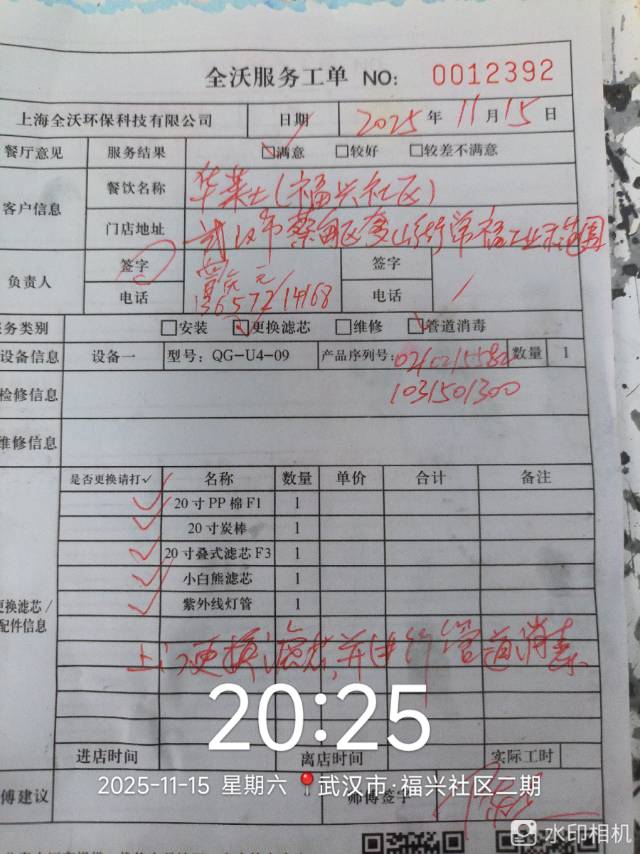 全沃服务工单 NO: 0012392
上海全沃环保科技有限公司 日期 2025 年 11 月 15 日
餐厅意见 服务结果 满意 较好 较差不满意
客户信息 餐饮名称 华莱士(福兴社区)
门店地址 武汉市蔡甸区奓山街常福工业示范园
负责人 签字 签字
电话 13657214168 电话 /
服务类别 安装 更换滤芯 维修 管道消毒
设备信息 设备一 型号: QG-U4-09 产品序列号: 数量 1
1031501300
检修信息
维修信息
是否更换请打✓ 名称 数量 单价 合计 备注
✓ 20寸PP棉F1 1
✓ 20寸炭棒 1
✓ 20寸叠式滤芯F3 1
✓ 小白熊滤芯 1
✓ 紫外线灯管 1
更换滤芯/
配件信息
上门更换滤芯,并进行管道消毒
20:25
进店时间 离店时间 实际工时
2025-11-15 星期六 武汉市·福兴社区二期
师傅建议 师傅签字
水印相机